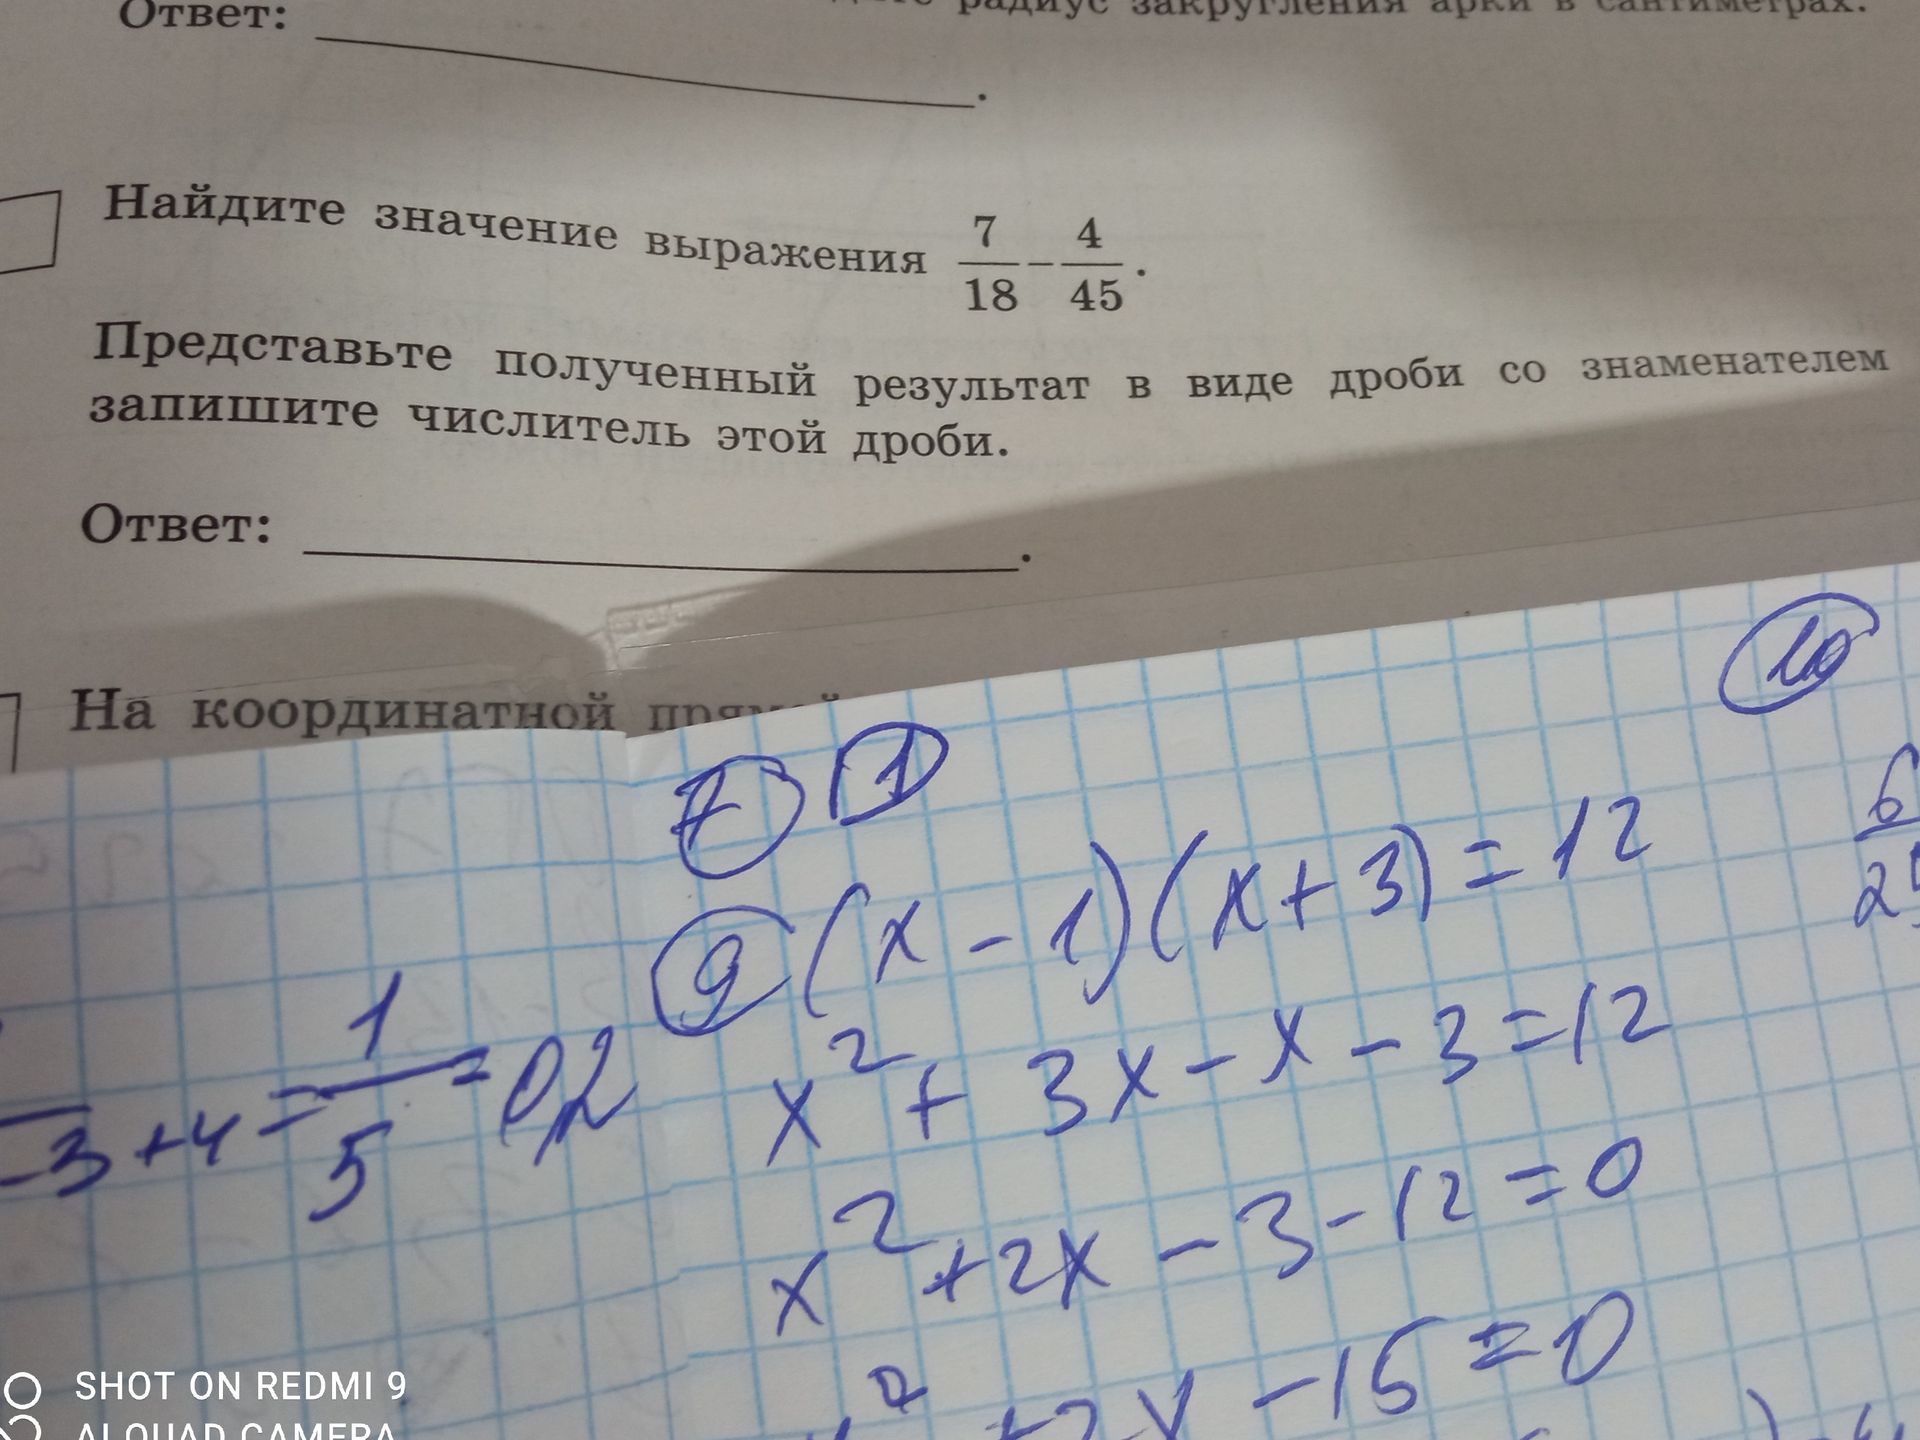 Ответ:
радиус закругления арки в сантиметрах.
Найдите значение выражения 7/18 − 4/45.
Представьте полученный результат в виде дроби со знаменателем
запишите числитель этой дроби.
Ответ:
На координатной
7) 1)
10
9) (x - 1)(x + 3) = 12
6/25
x² + 3x - x - 3 = 12
-3 + 4 = 1/5 = 0,2
x² + 2x - 3 - 12 = 0
+ 2x - 15 = 0
SHOT ON REDMI 9
AI QUAD CAMERA